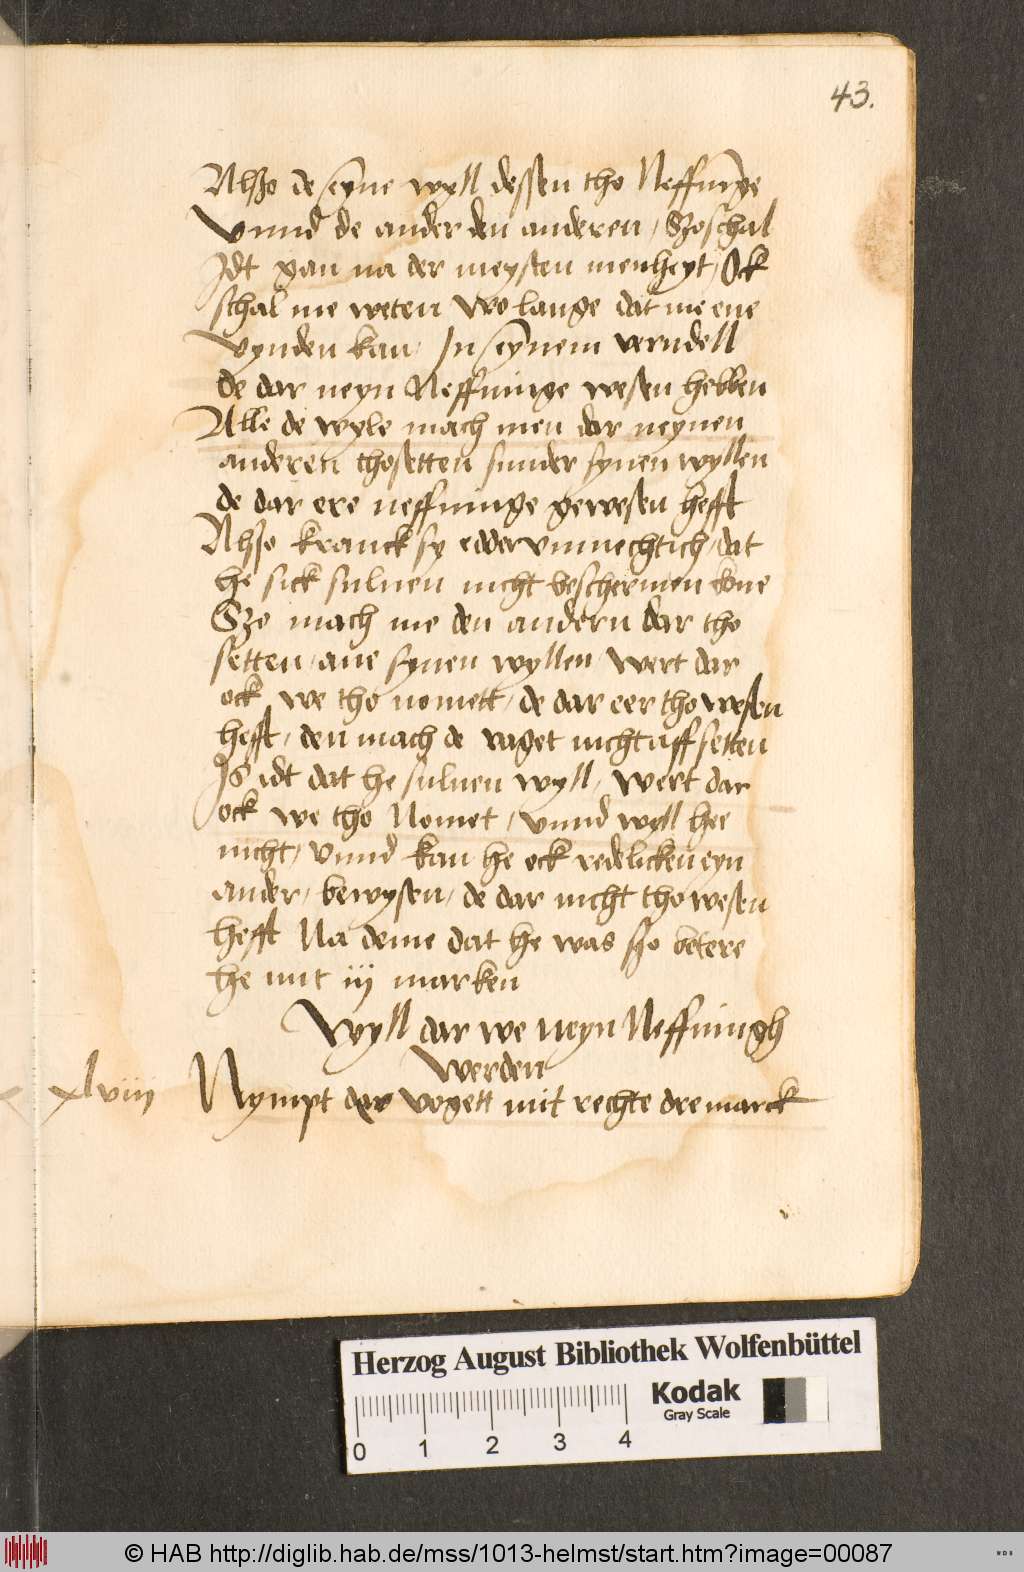 43.
Alszo de eyne wyll dessen tho Neffninge
Vnnd de ander den anderen / Szo schal
Jdt gan na der meysten menheyt / Ock
schal me weten wo lange dat me ene
vynden kan / Jn eynem verndell
de dar neyn Neffninge wesen hebben
Alle de wyle mach men dar neynen
anderen thosetten sunder synen wyllen
de dar ere neffninge gewesen hefft
Alszo kranck sy edder vnmechtich / dat
he sick suluen nicht beschermen kone
Szo mach me den andern dar tho
setten / ane synen wyllen / Wert dar
ock we tho nomett / de dar eer tho wesen
hefft / den mach de vaget nicht aff setten
Js idt dat he suluen wyll / Wert dar
ock we tho Nomet / vnnd wyll hee
nicht / Vnnd kan he ock redelicken eyn
ander / bewysen / de dar nicht tho wesen
hefft Na deme dat he was szo betere
he mit iij marken
Wyll dar we neyn Neffningh
werden
xlviij Nympt dar vogett mit rechte dre marck
Herzog August Bibliothek Wolfenbüttel
Kodak
Gray Scale
0 1 2 3 4
© HAB http://diglib.hab.de/mss/1013-helmst/start.htm?image=00087